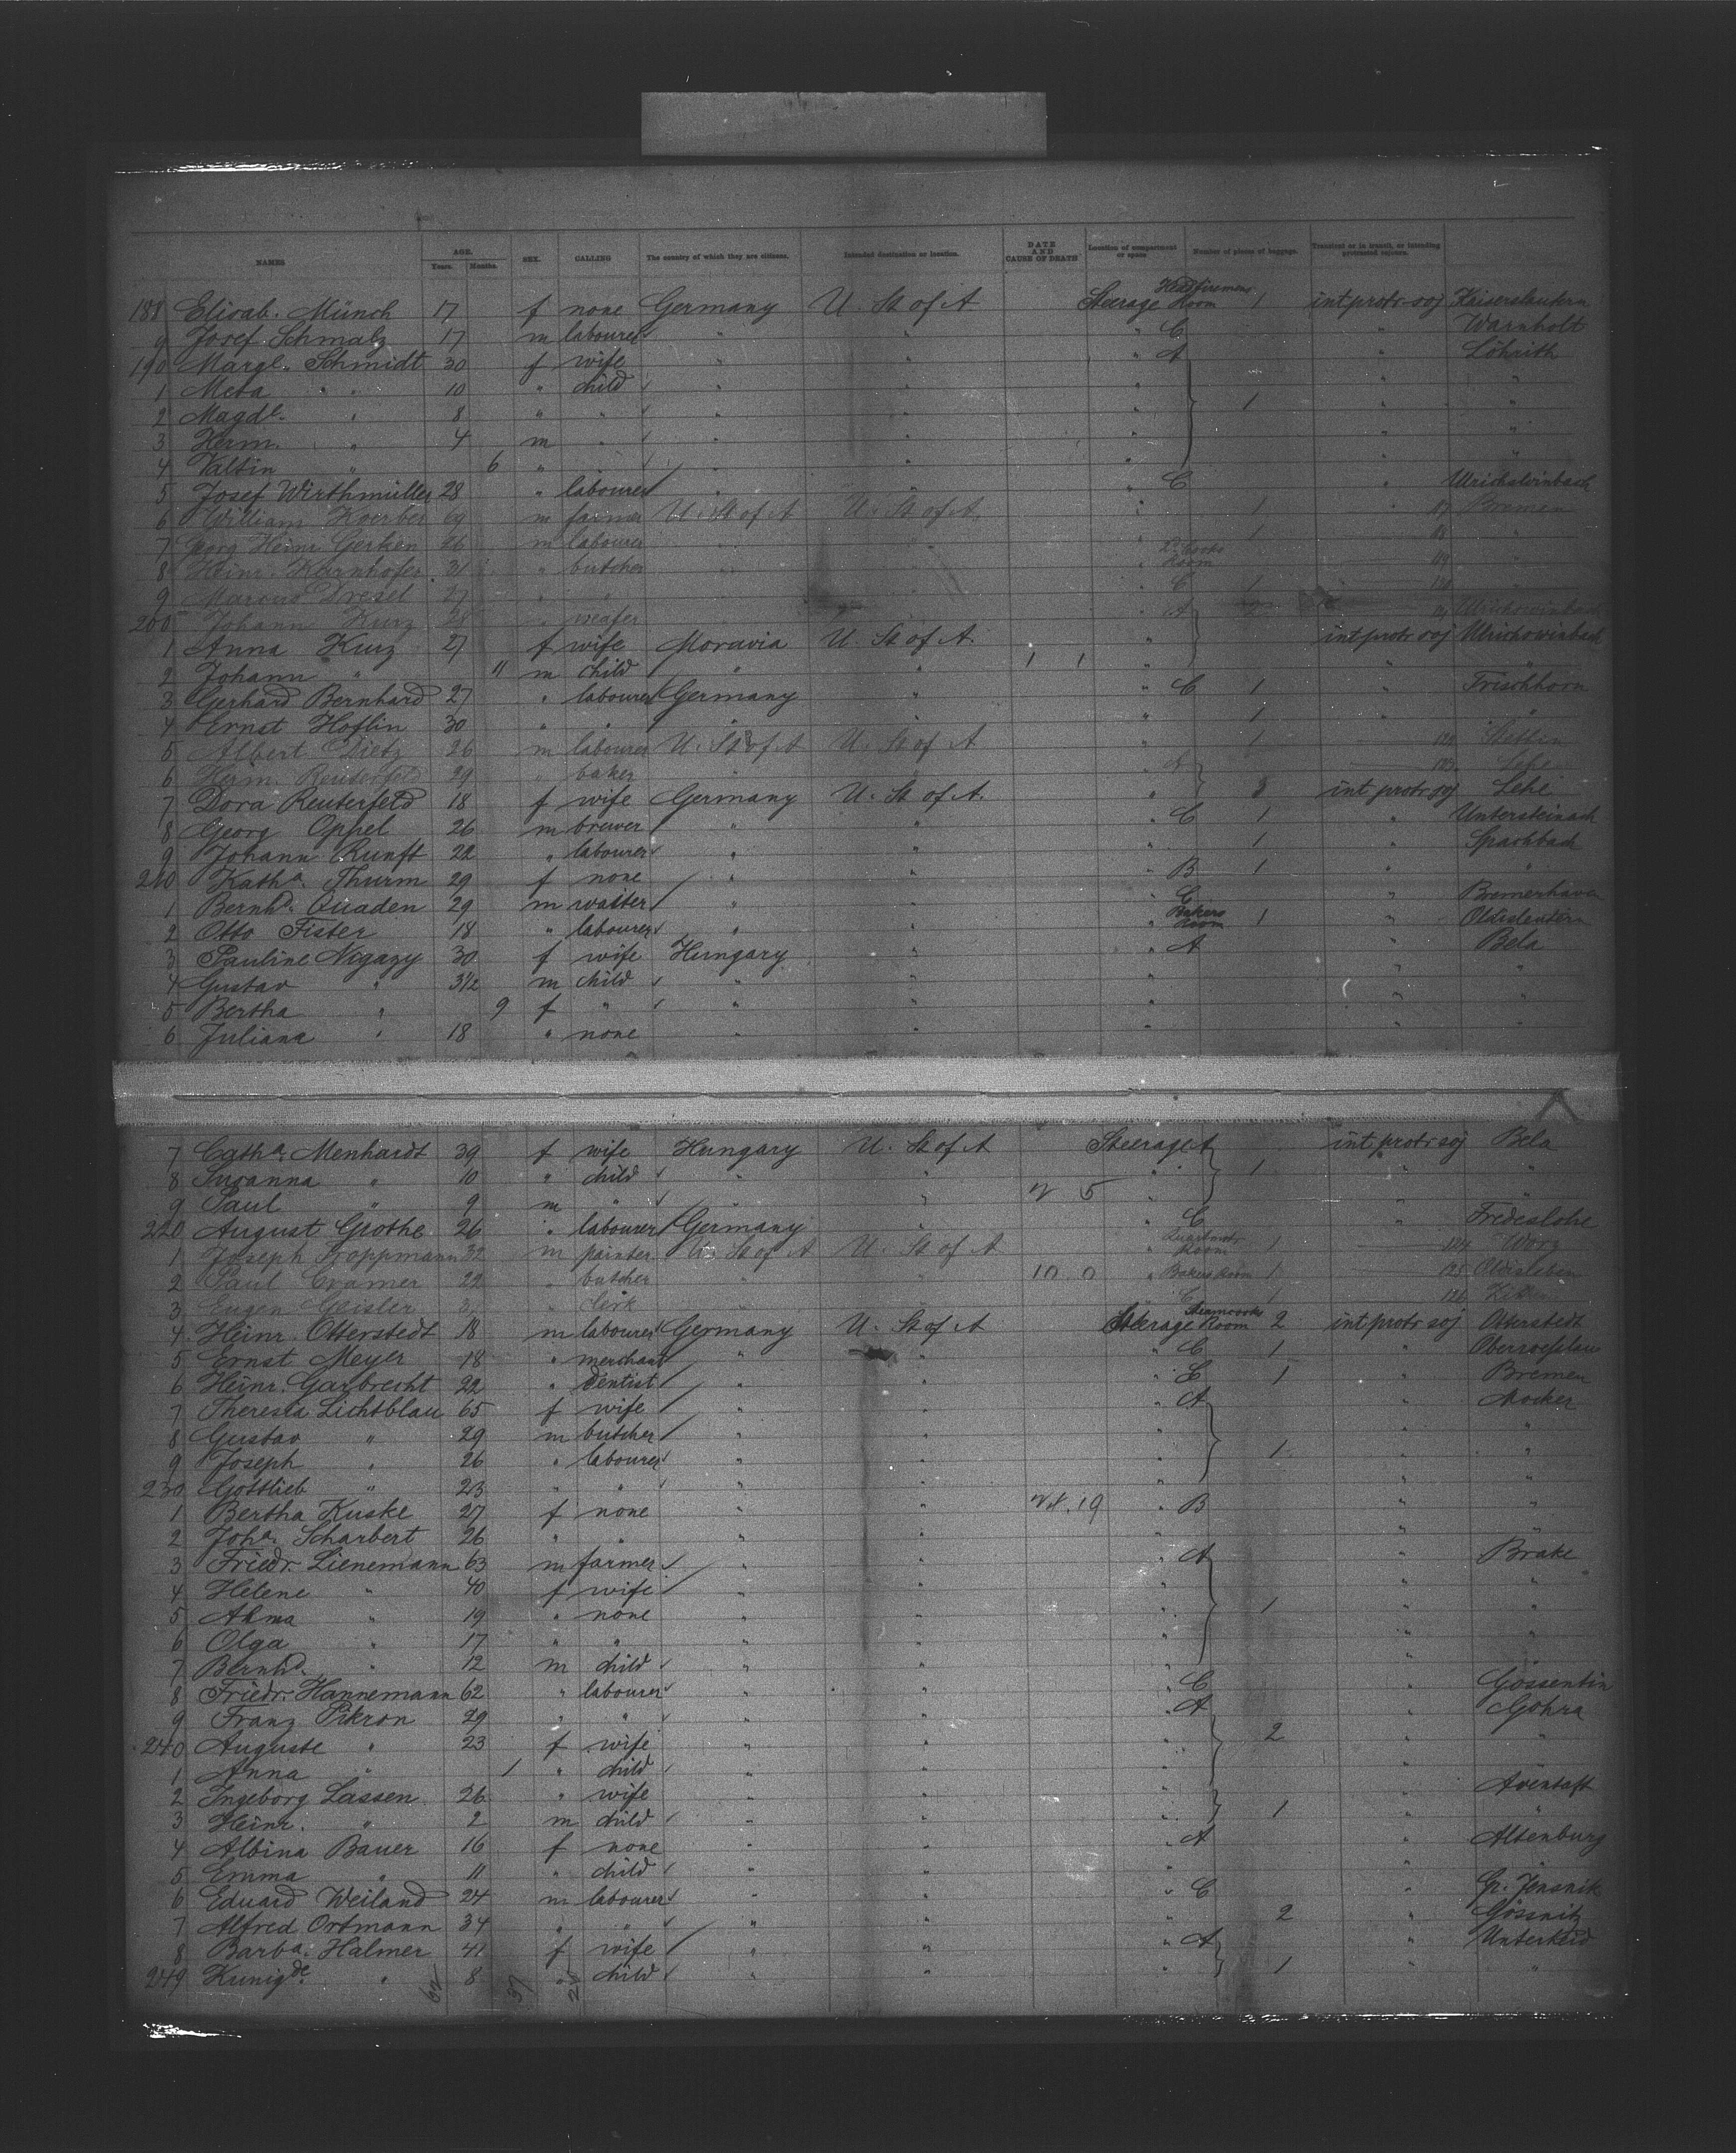 NAMES AGE. Years. Months. SEX. CALLING The country of which they are citizens. Intended destination or location. DATE AND CAUSE OF DEATH Location of compartment or space Number of pieces of baggage. Transient or in transit, or intending protracted sojourn.
188 Elisab. Münch 17 f none Germany U. St of A Steerage Headfiremens Room 1 int protr soj Kaiserslautern
9 Josef Schmalz 17 m labourer " " " C " Warnholt
190 Margt. Schmidt 30 f wife " " " A " Löhrith
1 Meta " 10 " child " " " " "
2 Magdl. " 8 " " " " " 1 " "
3 Herm. " 4 m " " " " " "
4 Valtin " 6 " " " " " "
5 Josef Wirthmüller 28 " labourer " " " C "
6 William Koerber 69 m farmer U. St of A U. St of A " 1 117 Bremen
7 Georg Heinr Gerken 26 m labourer " " " 1 118 "
8 Heinr. 31 " butcher " " " Cooks Room 119 "
9 Marcus Dresel 27 " " " " C 1 120 "
200 Johann Kurz 28 " " " A 121
1 Anna Kurz 27 f wife Moravia U. St of A. " int protr soj
2 Johann " 11 m child " " 1 1 " " "
3 Gerhard Bernhard 27 " labourer Germany " " C 1 " Frischborn
4 Ernst Hoflin 30 " " " " " 1 " "
5 Albert Dietz 26 m labourer U. St of A U. St of A 1 122 Stettin
6 Herm. Reuterfeld 29 " baker " " " A 123 Lehe
7 Dora Reuterfeld 18 f wife Germany U. St of A. " 3 int protr soj Lehe
8 Georg Oppel 26 m brewer " " " C 1 " Untersteinach
9 Johann Runft 22 " labourer " " " 1 " Spachbach
210 Katha. Thurm 29 f none " " " B 1 " "
1 Bernhd. Quaden 29 m waiter " " " C " Bremerhaven
2 Otto Fister 18 " labourer " " " Bakers Room 1 "
3 Pauline Nagazy 30 f wife Hungary " " A " Bela
4 Gustav " 3 1/2 m child " " " " "
5 Bertha " 9 f " " " " " "
6 Juliana " 18 " none " " " " "
7 Catha. Menhardt 39 f wife Hungary U. St of A Steerage A int protr soj Bela
8 Susanna " 10 " child " " " 1 " "
9 Paul " 9 m " " " 5 " " "
220 August Grothe 26 " labourer Germany " " C " Fredeslohe
1 Joseph Troppmann 32 m painter U. St of A U. St of A " Room 1 124
2 Paul Cramer 22 " butcher " " 10 0 " Bakers Room 1 125 Oldisleben
3 Eugen Geisler " clerk " " " C 1 126
4 Heinr. Otterstedt 18 m labourer Germany U. St of A Steerage Steamcooks Room 2 int protr soj Otterstedt
5 Ernst Meyer 18 " merchant " " " C 1 "
6 Heinr. Garbrecht 22 " dentist " " " C 1 " Bremen
7 Theresia Lichtblau 65 f wife " " " A " Mocker
8 Gustav " 29 m butcher " " " " "
9 Joseph " 26 " labourer " " " 1 " "
230 Gottlieb " 23 " " " " " " "
1 Bertha Kuske 27 f none " " 19 " B " "
2 Joha. Scharbert 26 " " " " " " "
3 Friedr. Lienemann 63 m farmer " " " A " Brake
4 Helene " 40 f wife " " " " "
5 Alma " 19 " none " " " 1 " "
6 Olga " 17 " " " " " " "
7 Bernhd. " 12 m child " " " " "
8 Friedr. Hannemann 62 " labourer " " " C " Gossentin
9 Franz Pikron 29 " " " " " A " Gohra
240 Auguste " 23 f wife " " " 2 " "
1 Anna " 1 " child " " " " "
2 Ingeborg Lassen 26 " wife " " " " Aventoft
3 Heinr. " 2 m child " " " 1 " "
4 Albina Bauer 16 f none " " " A " Altenburg
5 Emma " 11 " child " " " " "
6 Eduard Weiland 24 m labourer " " " C " Gr. Jensnik
7 Alfred Ortmann 34 " " " " " 2 " Gössnitz
8 Barba. Halmer 41 f wife " " " A " Unterkeid
249 Kunigde. " 8 " child " " " 1 " "
62 37 25